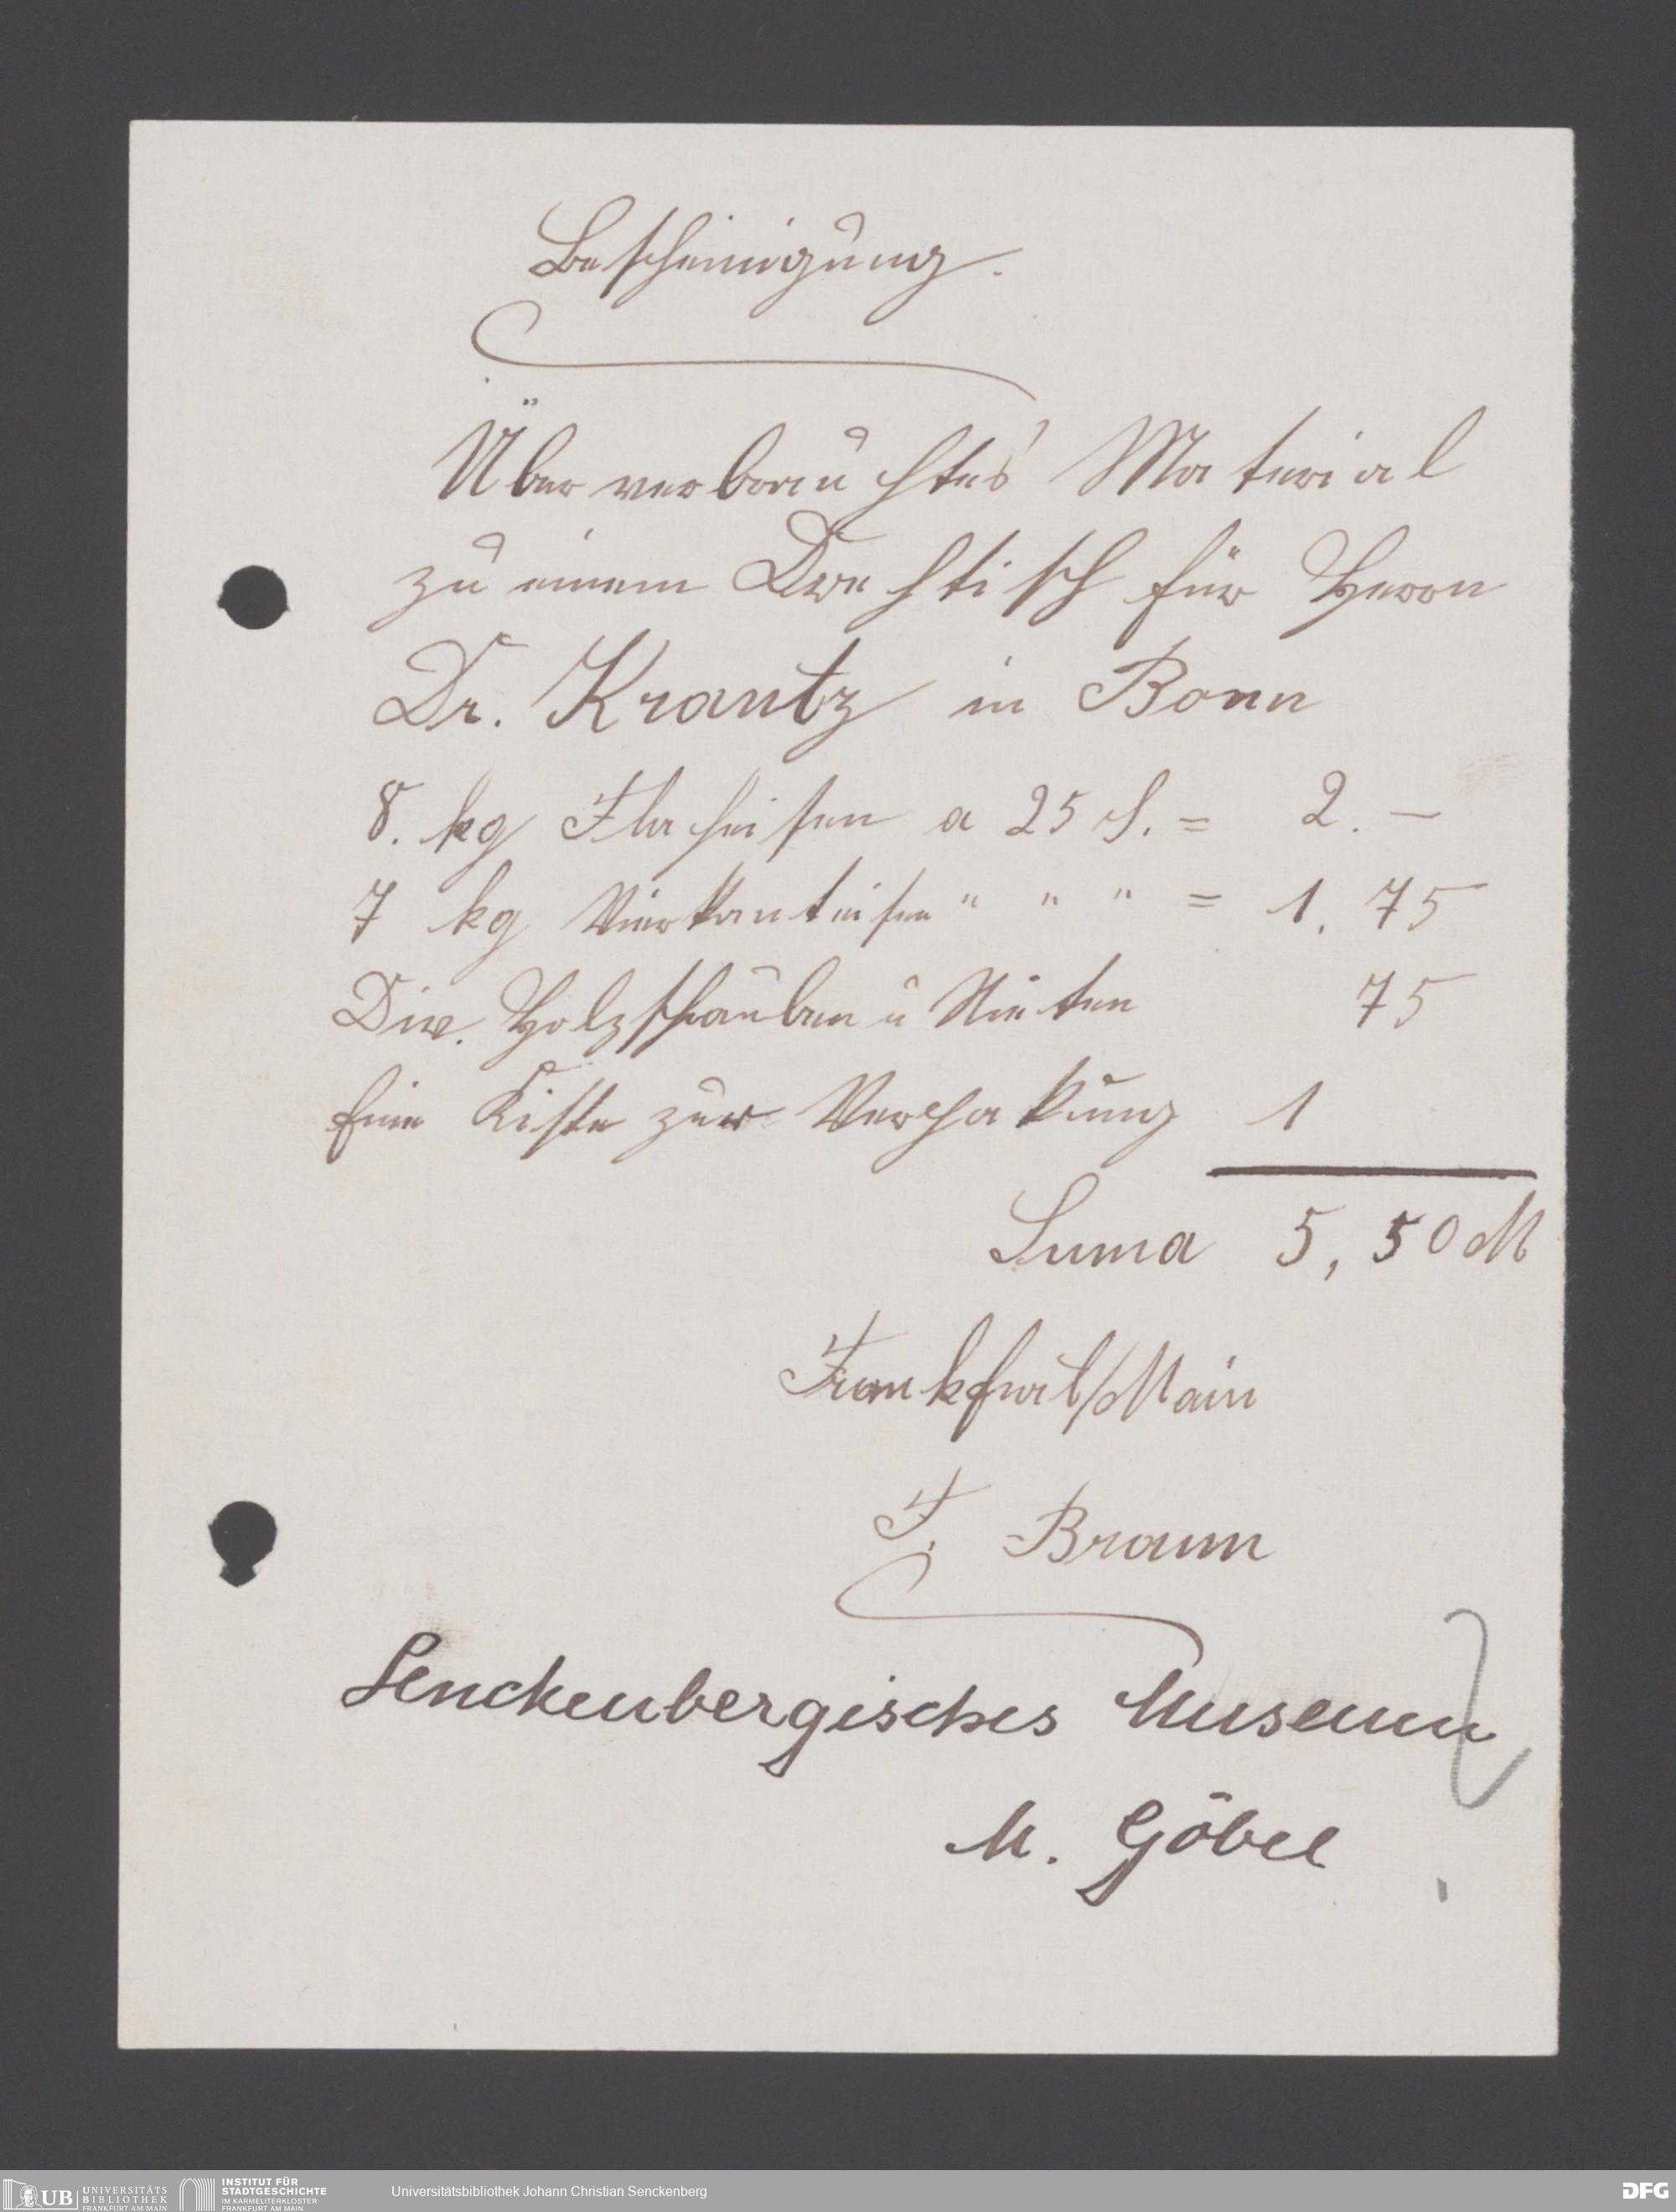 Bescheinigung.
Über verbrauchtes Material
zu einem Drehtisch für Herrn
Dr. Krantz in Bonn
8. kg Flacheisen a 25 ₰. = 2. —
7 kg Vierkanteisen " " " = 1. 75
Div. Holzschrauben u Nieten 75
Eine Kiste zur Verpakung 1
Suma 5,50 M
Frankfurt/Main
F. Braun
Senckenbergisches Museum
M. Göbel
UB UNIVERSITÄTS
BIBLIOTHEK
FRANKFURT AM MAIN
INSTITUT FÜR
STADTGESCHICHTE
IM KARMELITERKLOSTER
FRANKFURT AM MAIN
Universitätsbibliothek Johann Christian Senckenberg
DFG